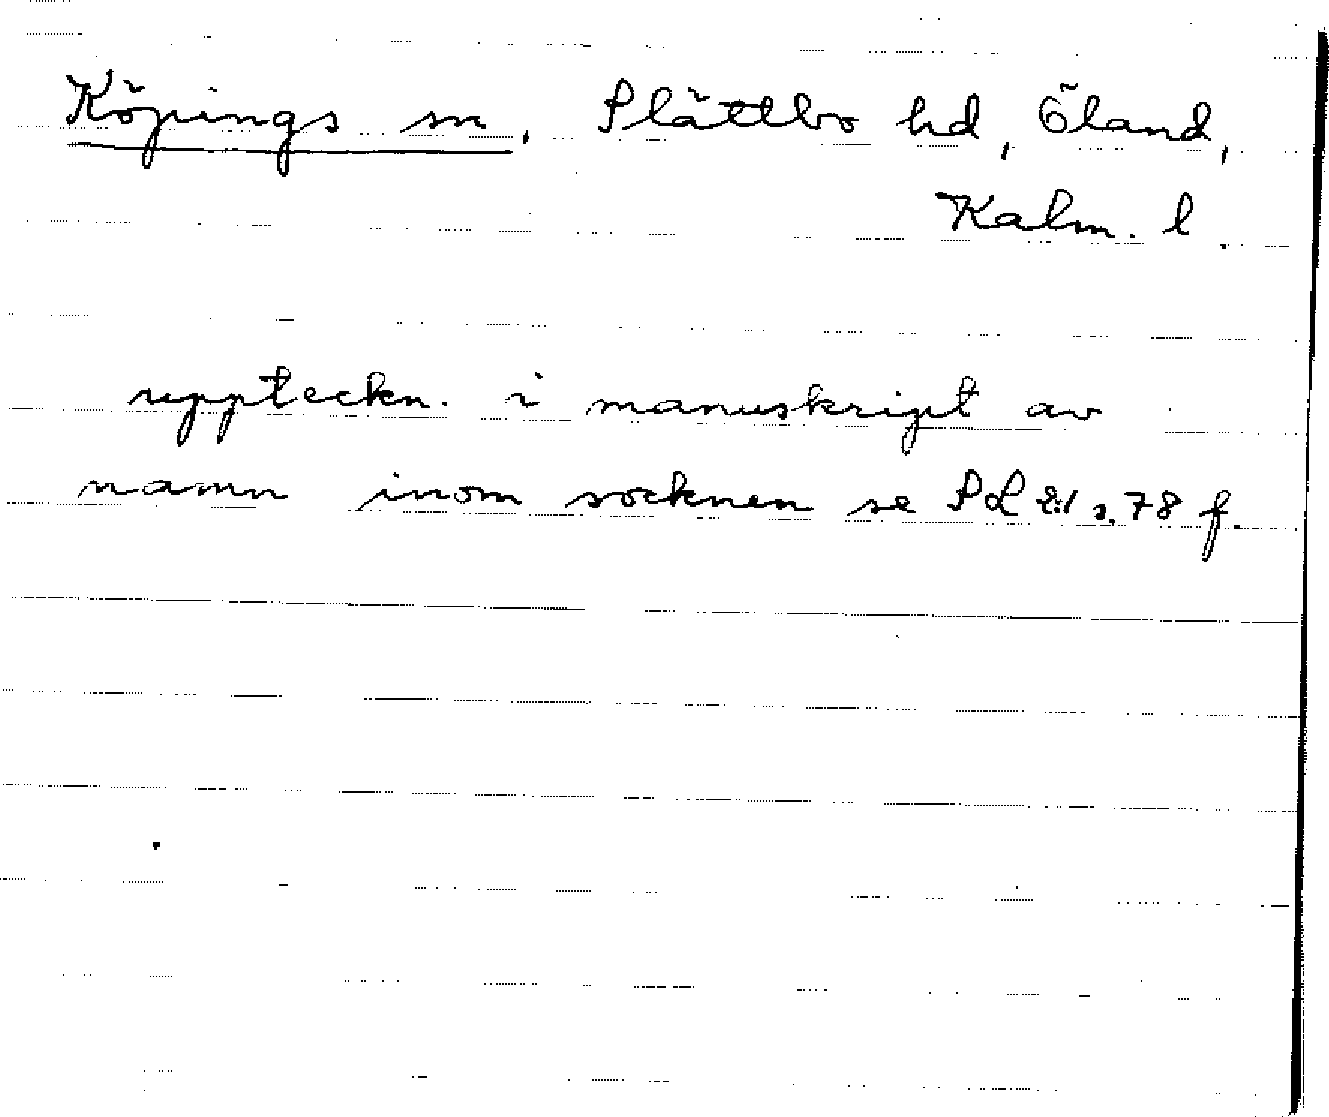 Köpings sn, Slättbo hd, Öland,
Kalm. l.
uppteckn. i manuskript av
namn inom socknen se SL 2:1 s. 78 f.